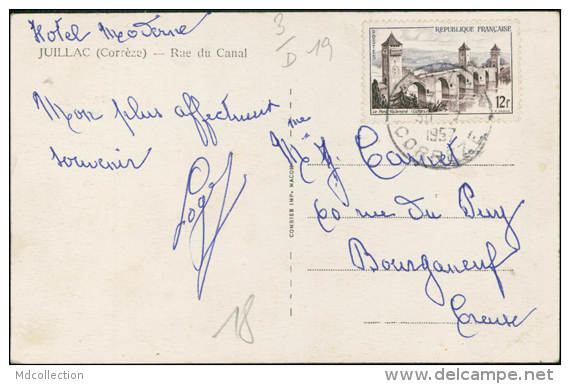 Hotel Moderne
JUILLAC (Corrèze) — Rue du Canal
3
D 19
Mon plus affectueux
souvenir
18
COMBIER IMP. MACON
POSTES
RÉPUBLIQUE FRANÇAISE
12f
1957
CORRÈZE
Mme
60 rue du Puy
Bourganeuf
Creuse
Mdcollection
www.delcampe.net